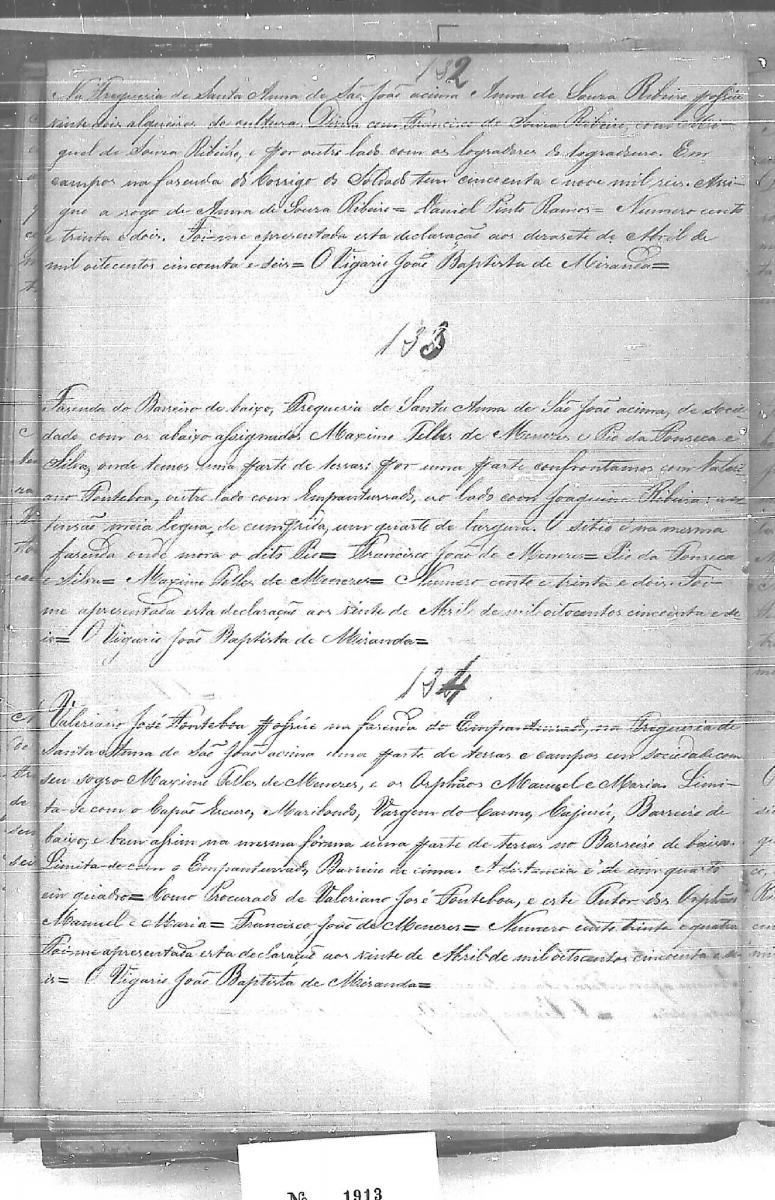 132
Na Freguesia de Santa Anna de São João acima Anna de Souza Ribeiro possue
vinte seis alqueires de cultura. Divida com Francisco de Souza Ribeiro, com Mi-
guel de Souza Ribeiro, e por outro lado com os logradores do logradouro. Em
campos na fazenda do Corrigo do Soldado tem cincoenta e nove mil reis. Assi-
gno a rogo de Anna de Souza Ribeiro = Daniel Pinto Ramos = Numero cento
e trinta e dois. Foi-me apresentada esta declaração aos dezasete de Abril de
mil oitocentos cincoenta e seis = O Vigario João Baptista de Miranda =
133
Fazenda do Barreiro de baixo, Freguesia de Santa Anna de São João acima, de socie-
dade com os abaixo assignados Maximo Telles de Menezes e Pio da Fonseca e
Silva, onde temos uma parte de terras: por uma parte confrontamos com Valeri-
ano Fonteboa, outro lado com Empanturrado, ao lado com Joaquim Ribeiro: ex-
tensão meia legua, de cumprido, um quarto de largura. O sitio é na mesma
fazenda onde mora o dito Pio = Francisco João de Menezes = Pio da Fonseca
e Silva = Maximo Telles de Menezes = Numero cento e trinta e dois. Foi-
me apresentada esta declaração aos vinte de Abril de mil oitocentos cincoenta e se-
is = O Vigario João Baptista de Miranda =
134
Valeriano José Fonteboa possue na fazenda do Empanturrado, na Freguesia de
Santa Anna de São João acima uma parte de terras e campos em sociedade com
seu sogro Maximo Telles de Menezes, e os Orphãos Manuel e Maria. Limi-
ta-se com o Capão Escuro, Maribondo, Vargem do Carmo, Cajurú, Barreiro de
baixo, e bem assim na mesma fórma uma parte de terras no Barreiro de baixo.
Limita-se com o Empanturrado, Barreiro de cima. A distancia é de um quarto
em quadro = Como Procurado de Valeriano José Fonteboa, e este Tutor dos Orphãos
Manuel e Maria = Francisco João de Menezes = Numero cento trinta e quatro
Foi-me apresentada esta declaração aos vinte de Abril de mil oitocentos cincoenta e se-
is = O Vigario João Baptista de Miranda =
Nº 1913